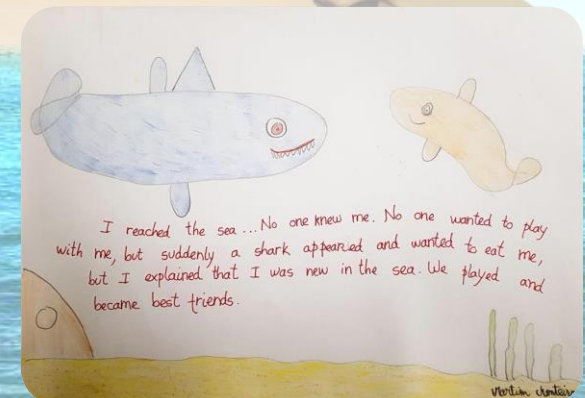 I reached the sea...No one knew me. No one wanted to play
with me, but suddenly a shark appeared and wanted to eat me,
but I explained that I was new in the sea. We played and
became best friends.